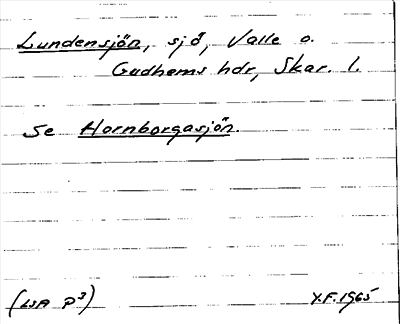 Lundensjön, sjö, Valle o.
Gudhems hdr, Skar. l.
Se Hornborgasjön.
(LSA P3)
Y.F. 1965